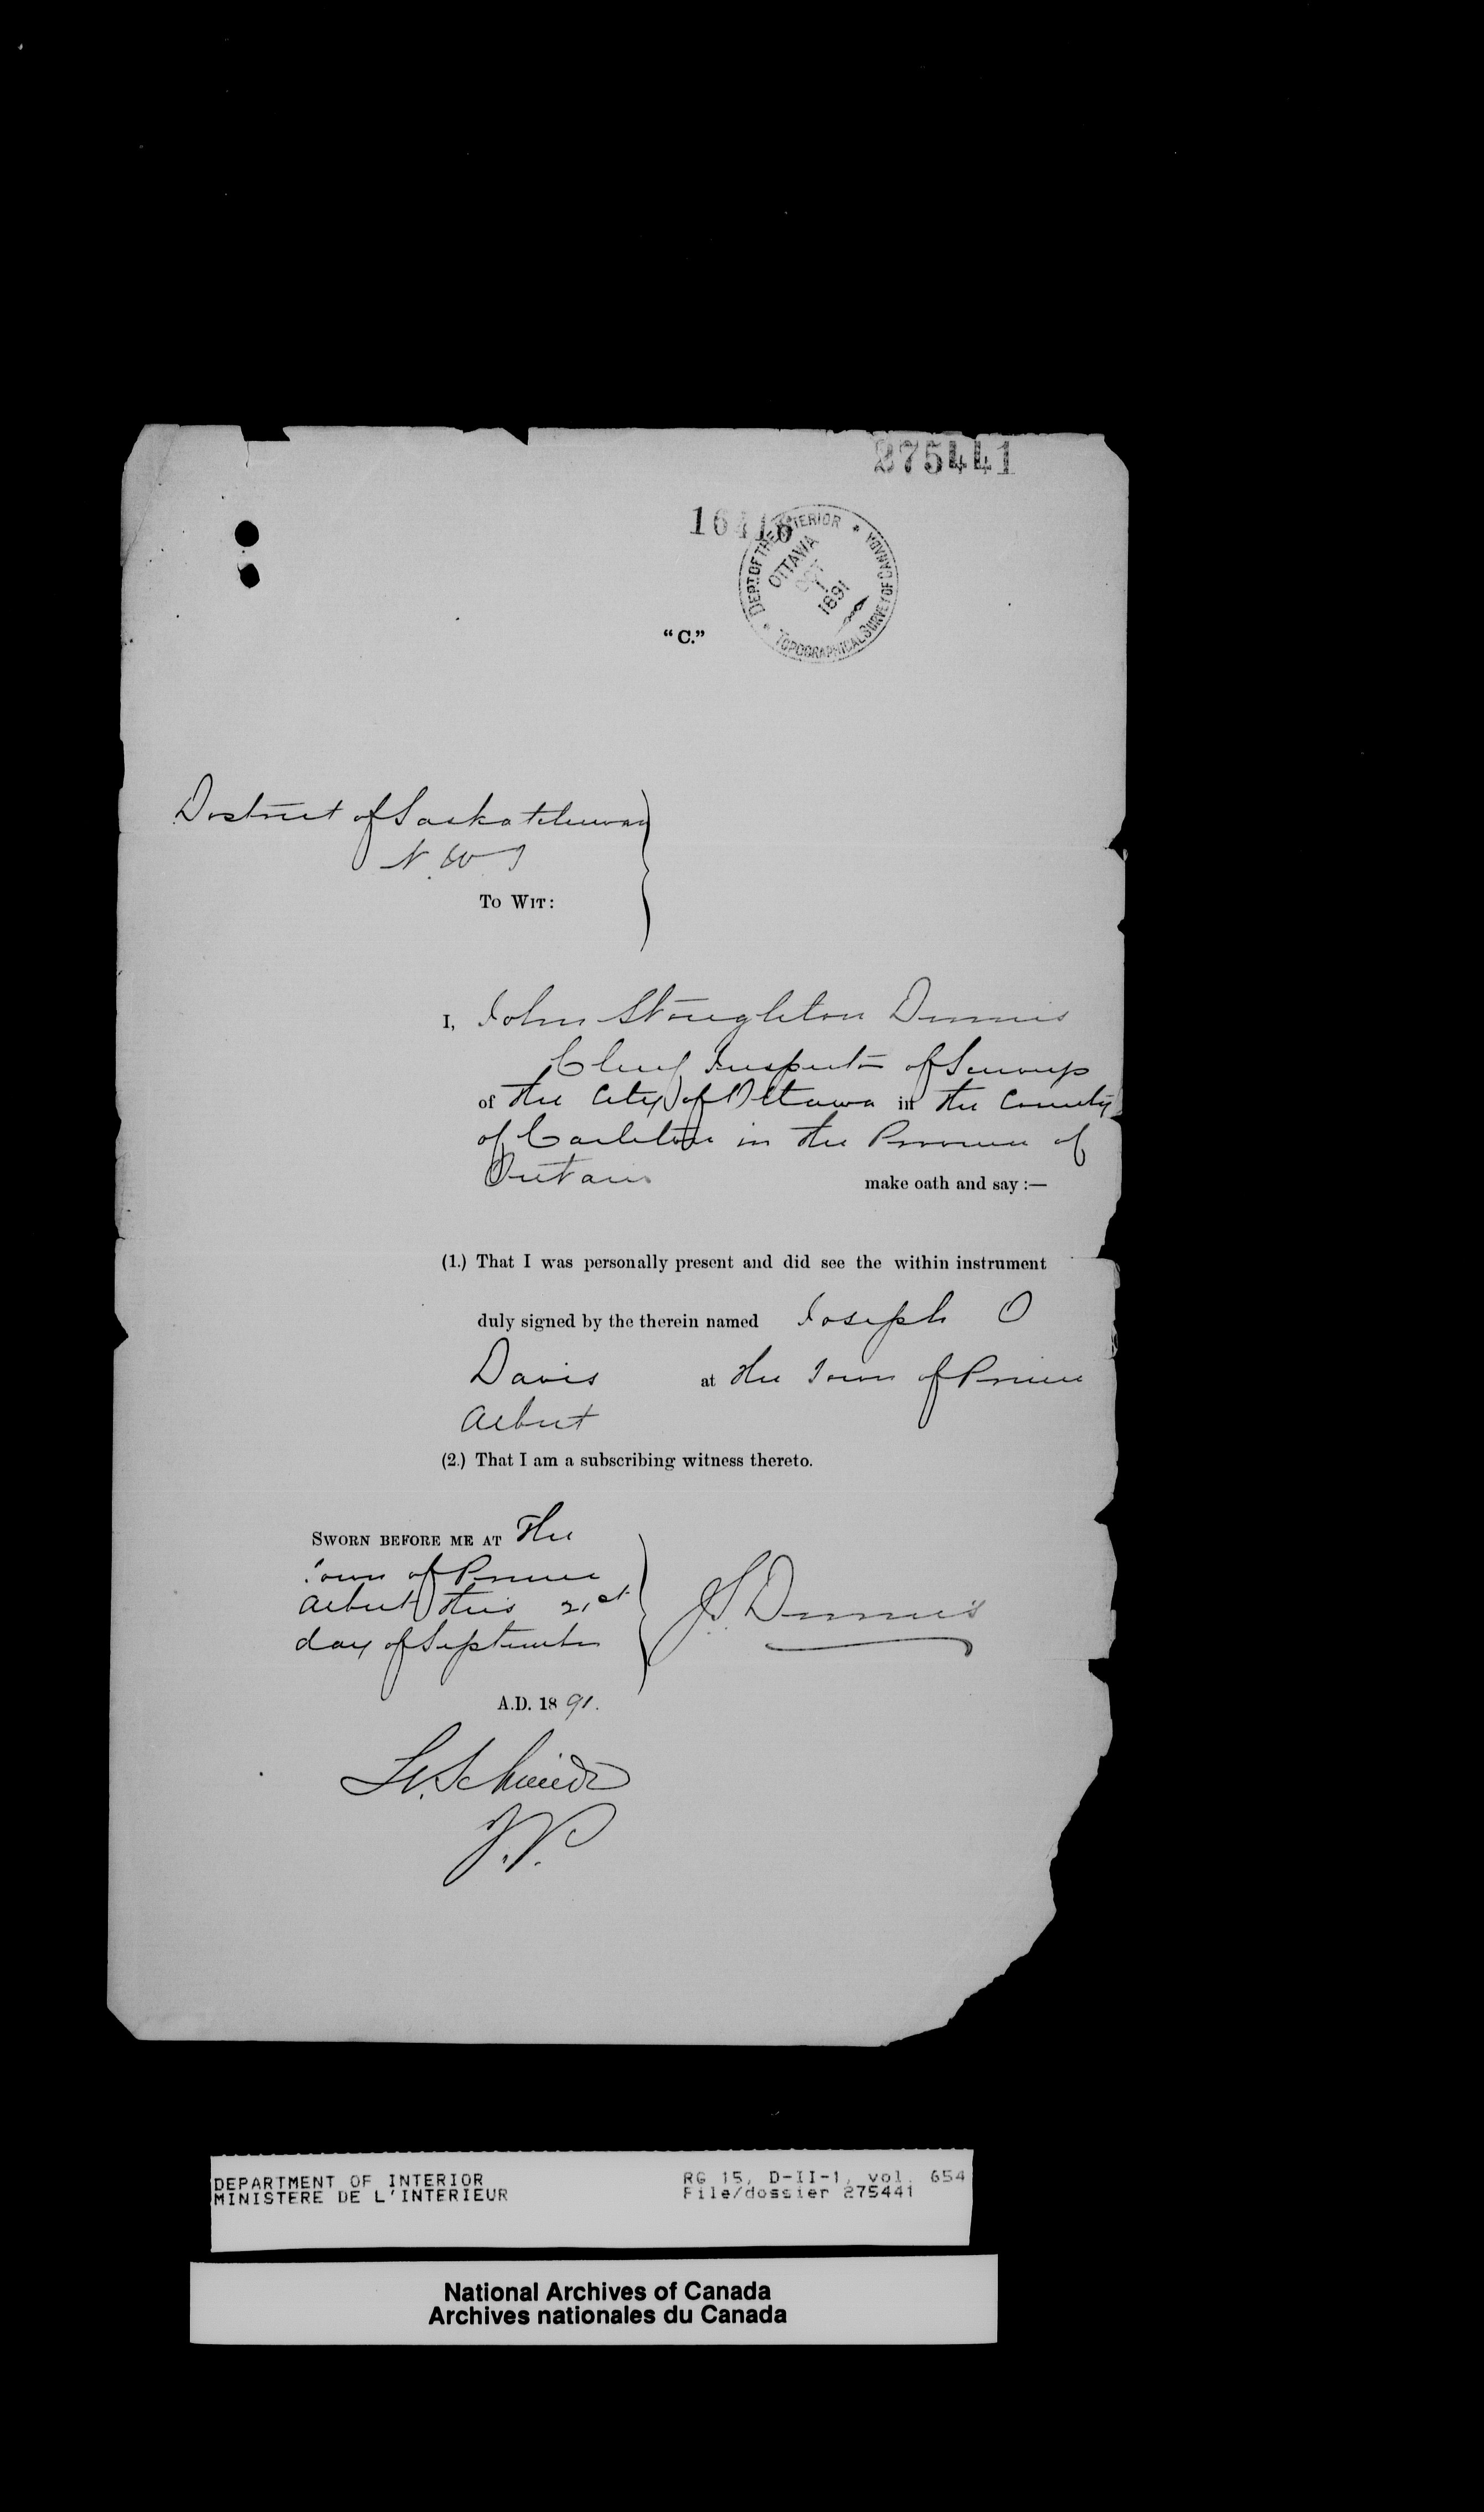 275441
16416
DEPT. OF THE INTERIOR * TOPOGRAPHICAL SURVEY OF CANADA *
OTTAWA
OCT
1
1891
"C."
District of Saskatchewan
N.W.T
TO WIT:
I, John Stoughton Dennis
Chief Inspector of Surveys
of the City of Ottawa in the County
of Carleton in the Province of
Ontario make oath and say:—
(1.) That I was personally present and did see the within instrument
duly signed by the therein named Joseph O
Davis at the Town of Prince
Albert
(2.) That I am a subscribing witness thereto.
SWORN BEFORE ME AT the
Town of Prince
Albert this 21st
day of September
J S Dennis
A.D. 1891.
L. Schmidt
J.P.
DEPARTMENT OF INTERIOR
MINISTERE DE L'INTERIEUR
RG 15, D-II-1, vol. 654
File/dossier 275441
National Archives of Canada
Archives nationales du Canada